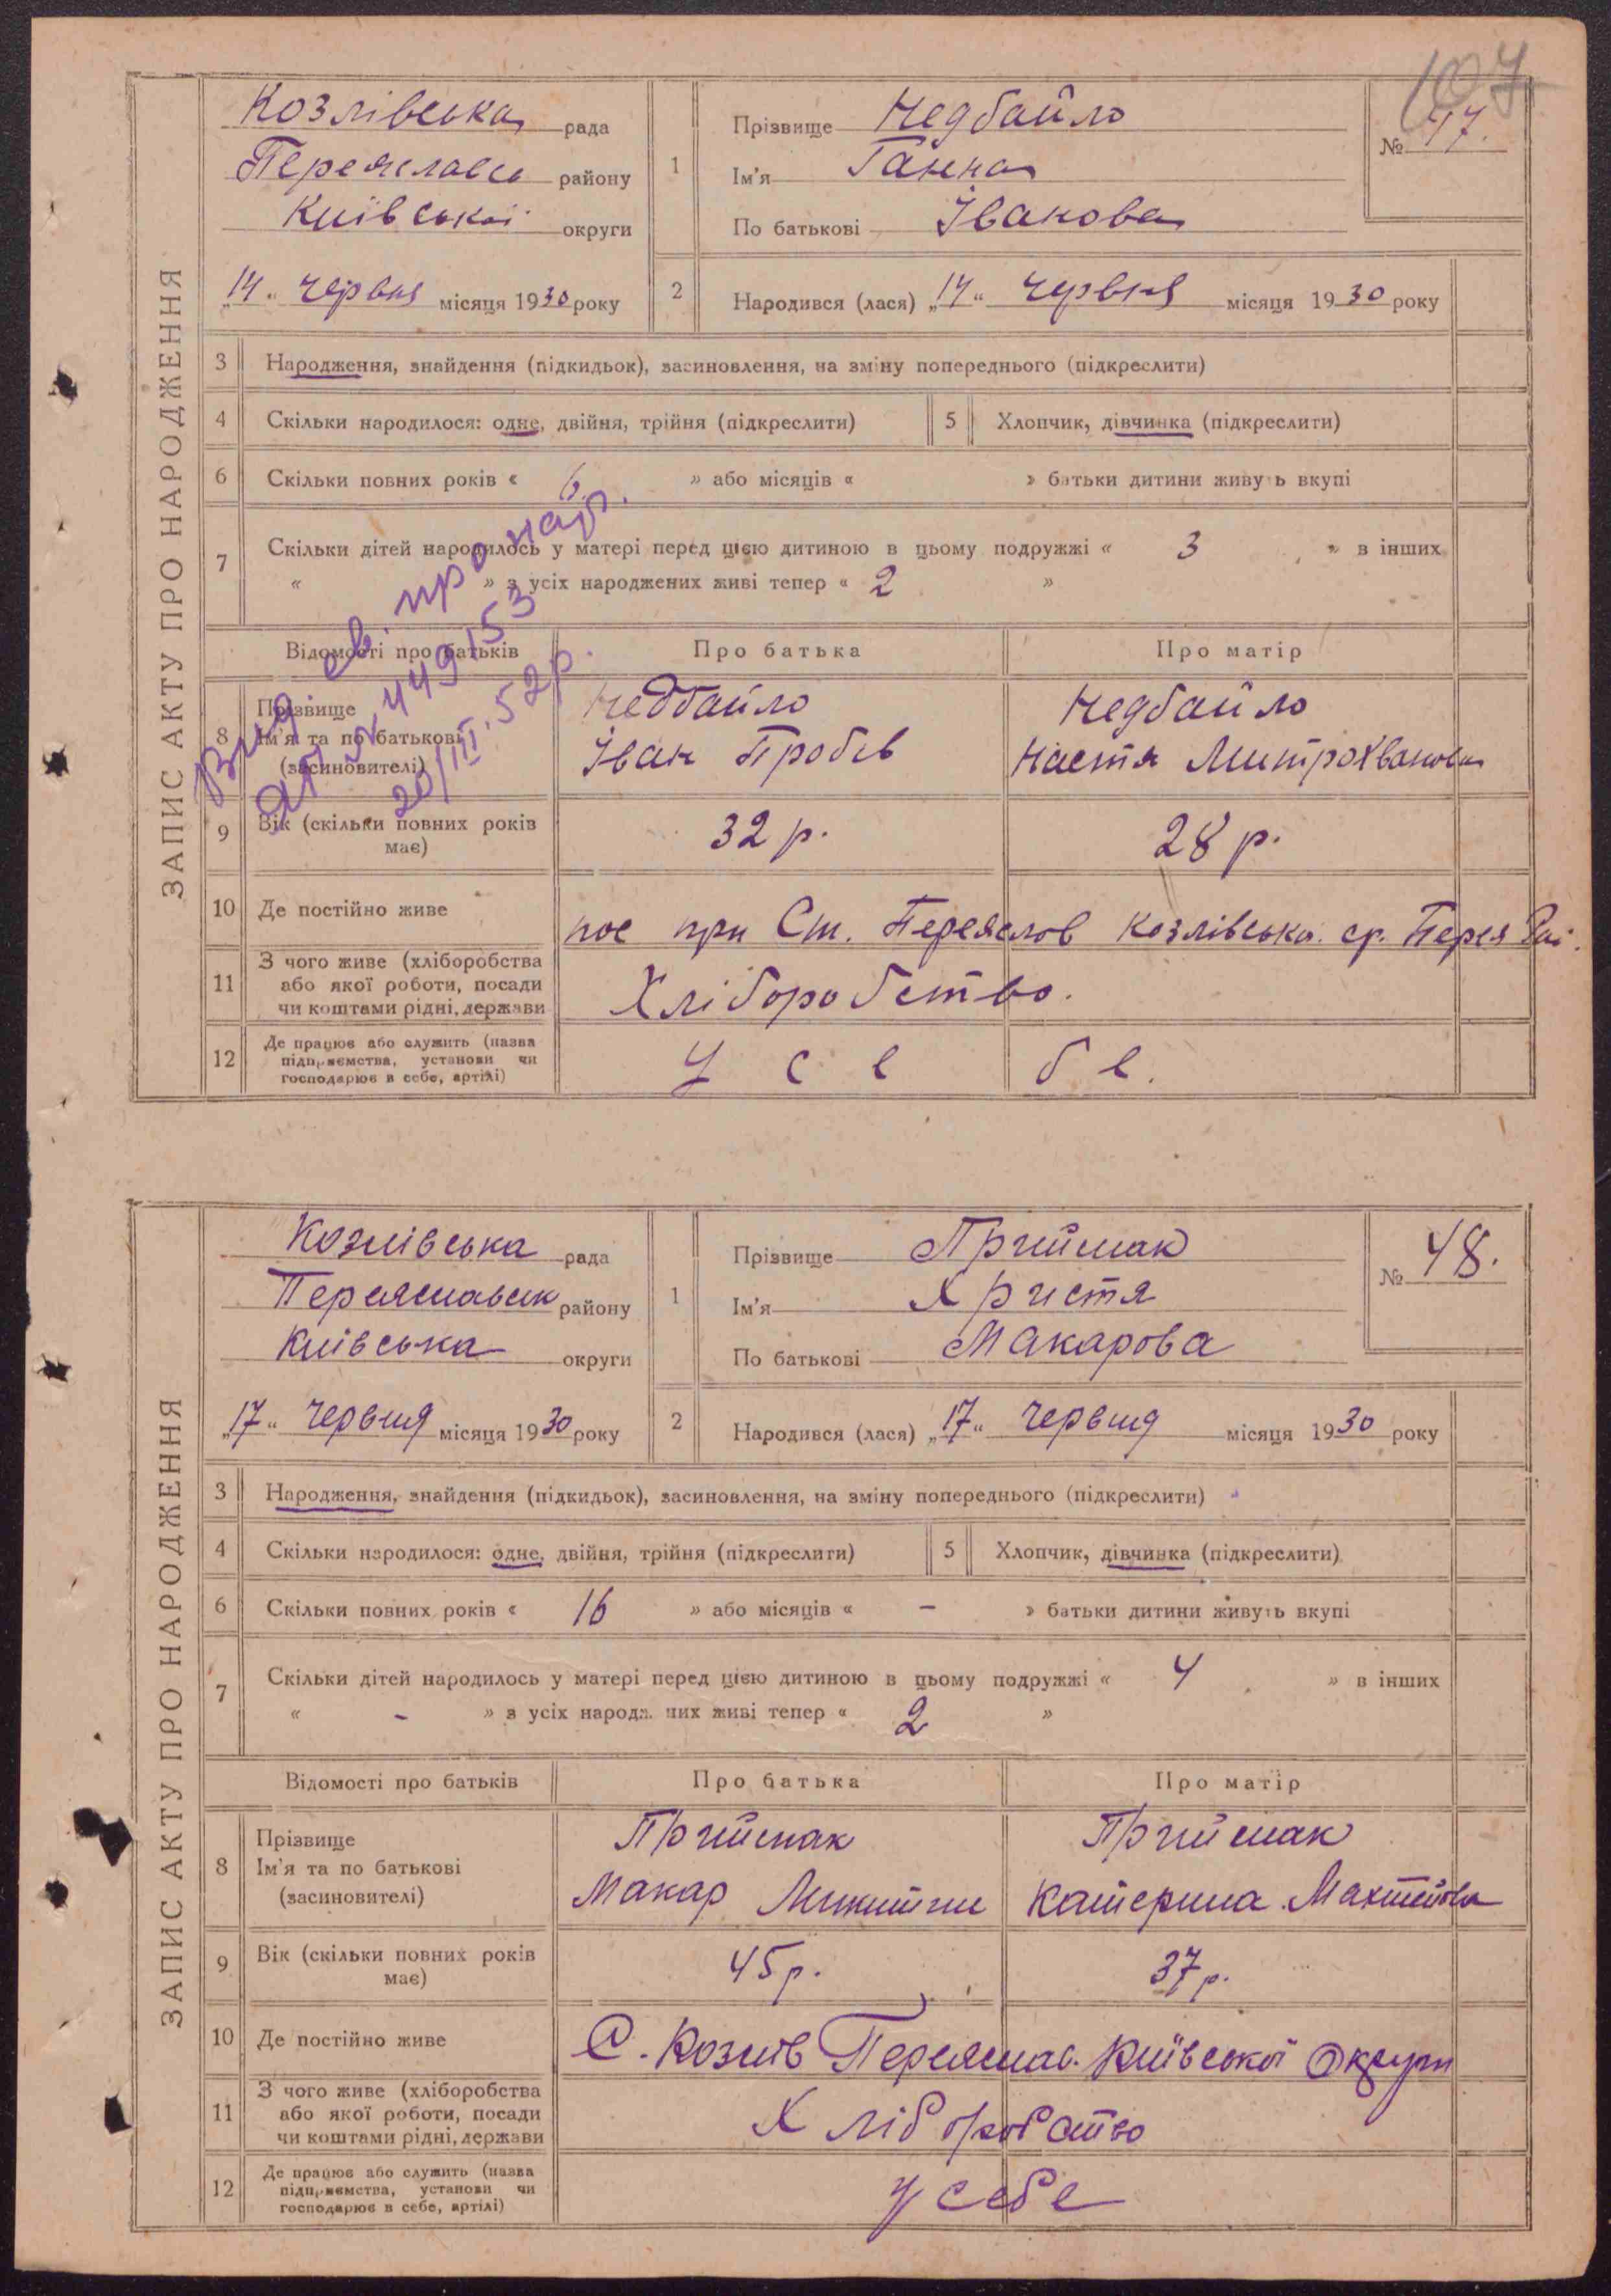 107
ЗАПИС АКТУ ПРО НАРОДЖЕННЯ
Козлівська рада
Переяславсь району
Київської округи
„14“ червня місяця 1930 року
1
Прізвище Недбайло
Ім'я Ганна
По батькові Іванова
№ 47.
2
Народився (лася) „14“ червня місяця 1930 року
3 Народження, знайдення (підкидьок), засиновлення, на зміну попереднього (підкреслити)
4 Скільки народилося: одне, двійня, трійня (підкреслити) 5 Хлопчик, дівчинка (підкреслити)
6 Скільки повних років « 6 » або місяців « » батьки дитини живуть вкупі
7 Скільки дітей народилось у матері перед цією дитиною в цьому подружжі « 3 » в інших
« » з усіх народжених живі тепер « 2 »
Вид св. про нар.
ЯП № 449153
20/III. 52р.
Відомості про батьків Про батька Про матір
8 Прізвище
Ім'я та по батькові
(засиновителі)
Недбайло
Іван
Недбайло
Настя Митрохванова
9 Вік (скільки повних років має) 32 р. 28 р.
10 Де постійно живе пос при Ст. Переяслов Козлівська. ср. Перея Рай.
11 З чого живе (хліборобства
або якої роботи, посади
чи коштами рідні, держави
Хліборобство.
12 Де працює або служить (назва
підприємства, установи чи
господарює в себе, артілі)
У себе.
ЗАПИС АКТУ ПРО НАРОДЖЕННЯ
Козлівська рада
Переяславськ району
Київська округи
„17“ червня місяця 1930 року
1
Прізвище Приймак
Ім'я Христя
По батькові Макарова
№ 48.
2
Народився (лася) „17“ червня місяця 1930 року
3 Народження, знайдення (підкидьок), засиновлення, на зміну попереднього (підкреслити)
4 Скільки народилося: одне, двійня, трійня (підкреслити) 5 Хлопчик, дівчинка (підкреслити)
6 Скільки повних років « 16 » або місяців « - » батьки дитини живуть вкупі
7 Скільки дітей народилось у матері перед цією дитиною в цьому подружжі « 4 » в інших
« - » з усіх народжених живі тепер « 2 »
Відомості про батьків Про батька Про матір
8 Прізвище
Ім'я та по батькові
(засиновителі)
Приймак
Макар
Приймак
Катерина
9 Вік (скільки повних років має) 45 р. 37 р.
10 Де постійно живе С. Козлів Переяслав. Київської Округи
11 З чого живе (хліборобства
або якої роботи, посади
чи коштами рідні, держави
Хліборобство
12 Де працює або служить (назва
підприємства, установи чи
господарює в себе, артілі)
У себе